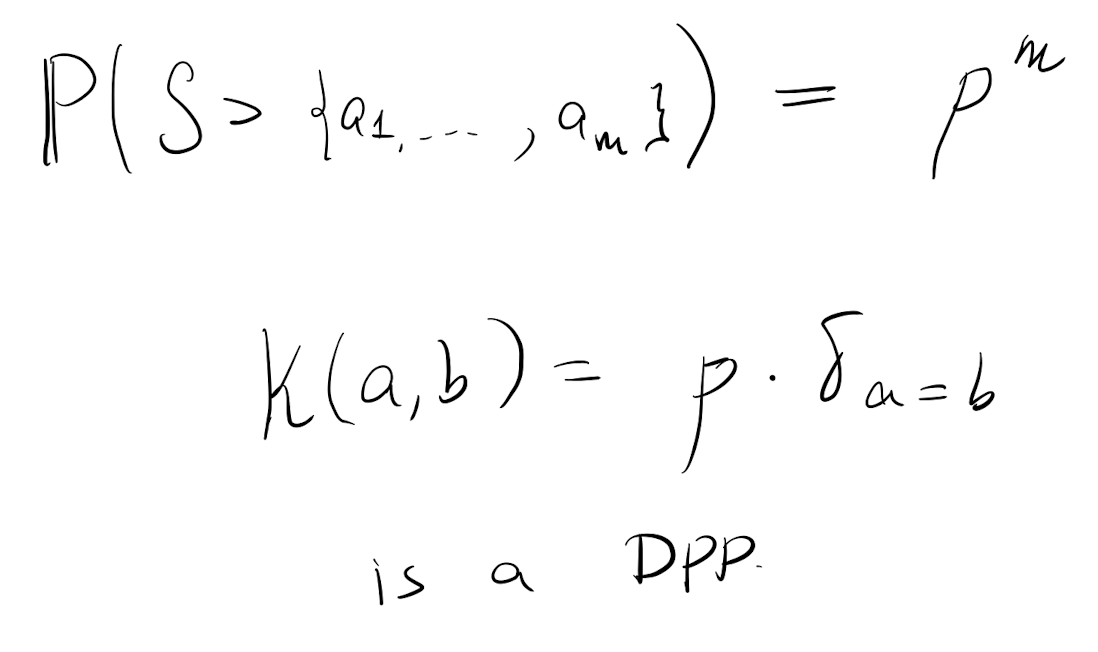 P(S > {a₁, ..., aₘ}) = pᵐ
K(a,b) = p · δ_{a=b}
is a DPP.